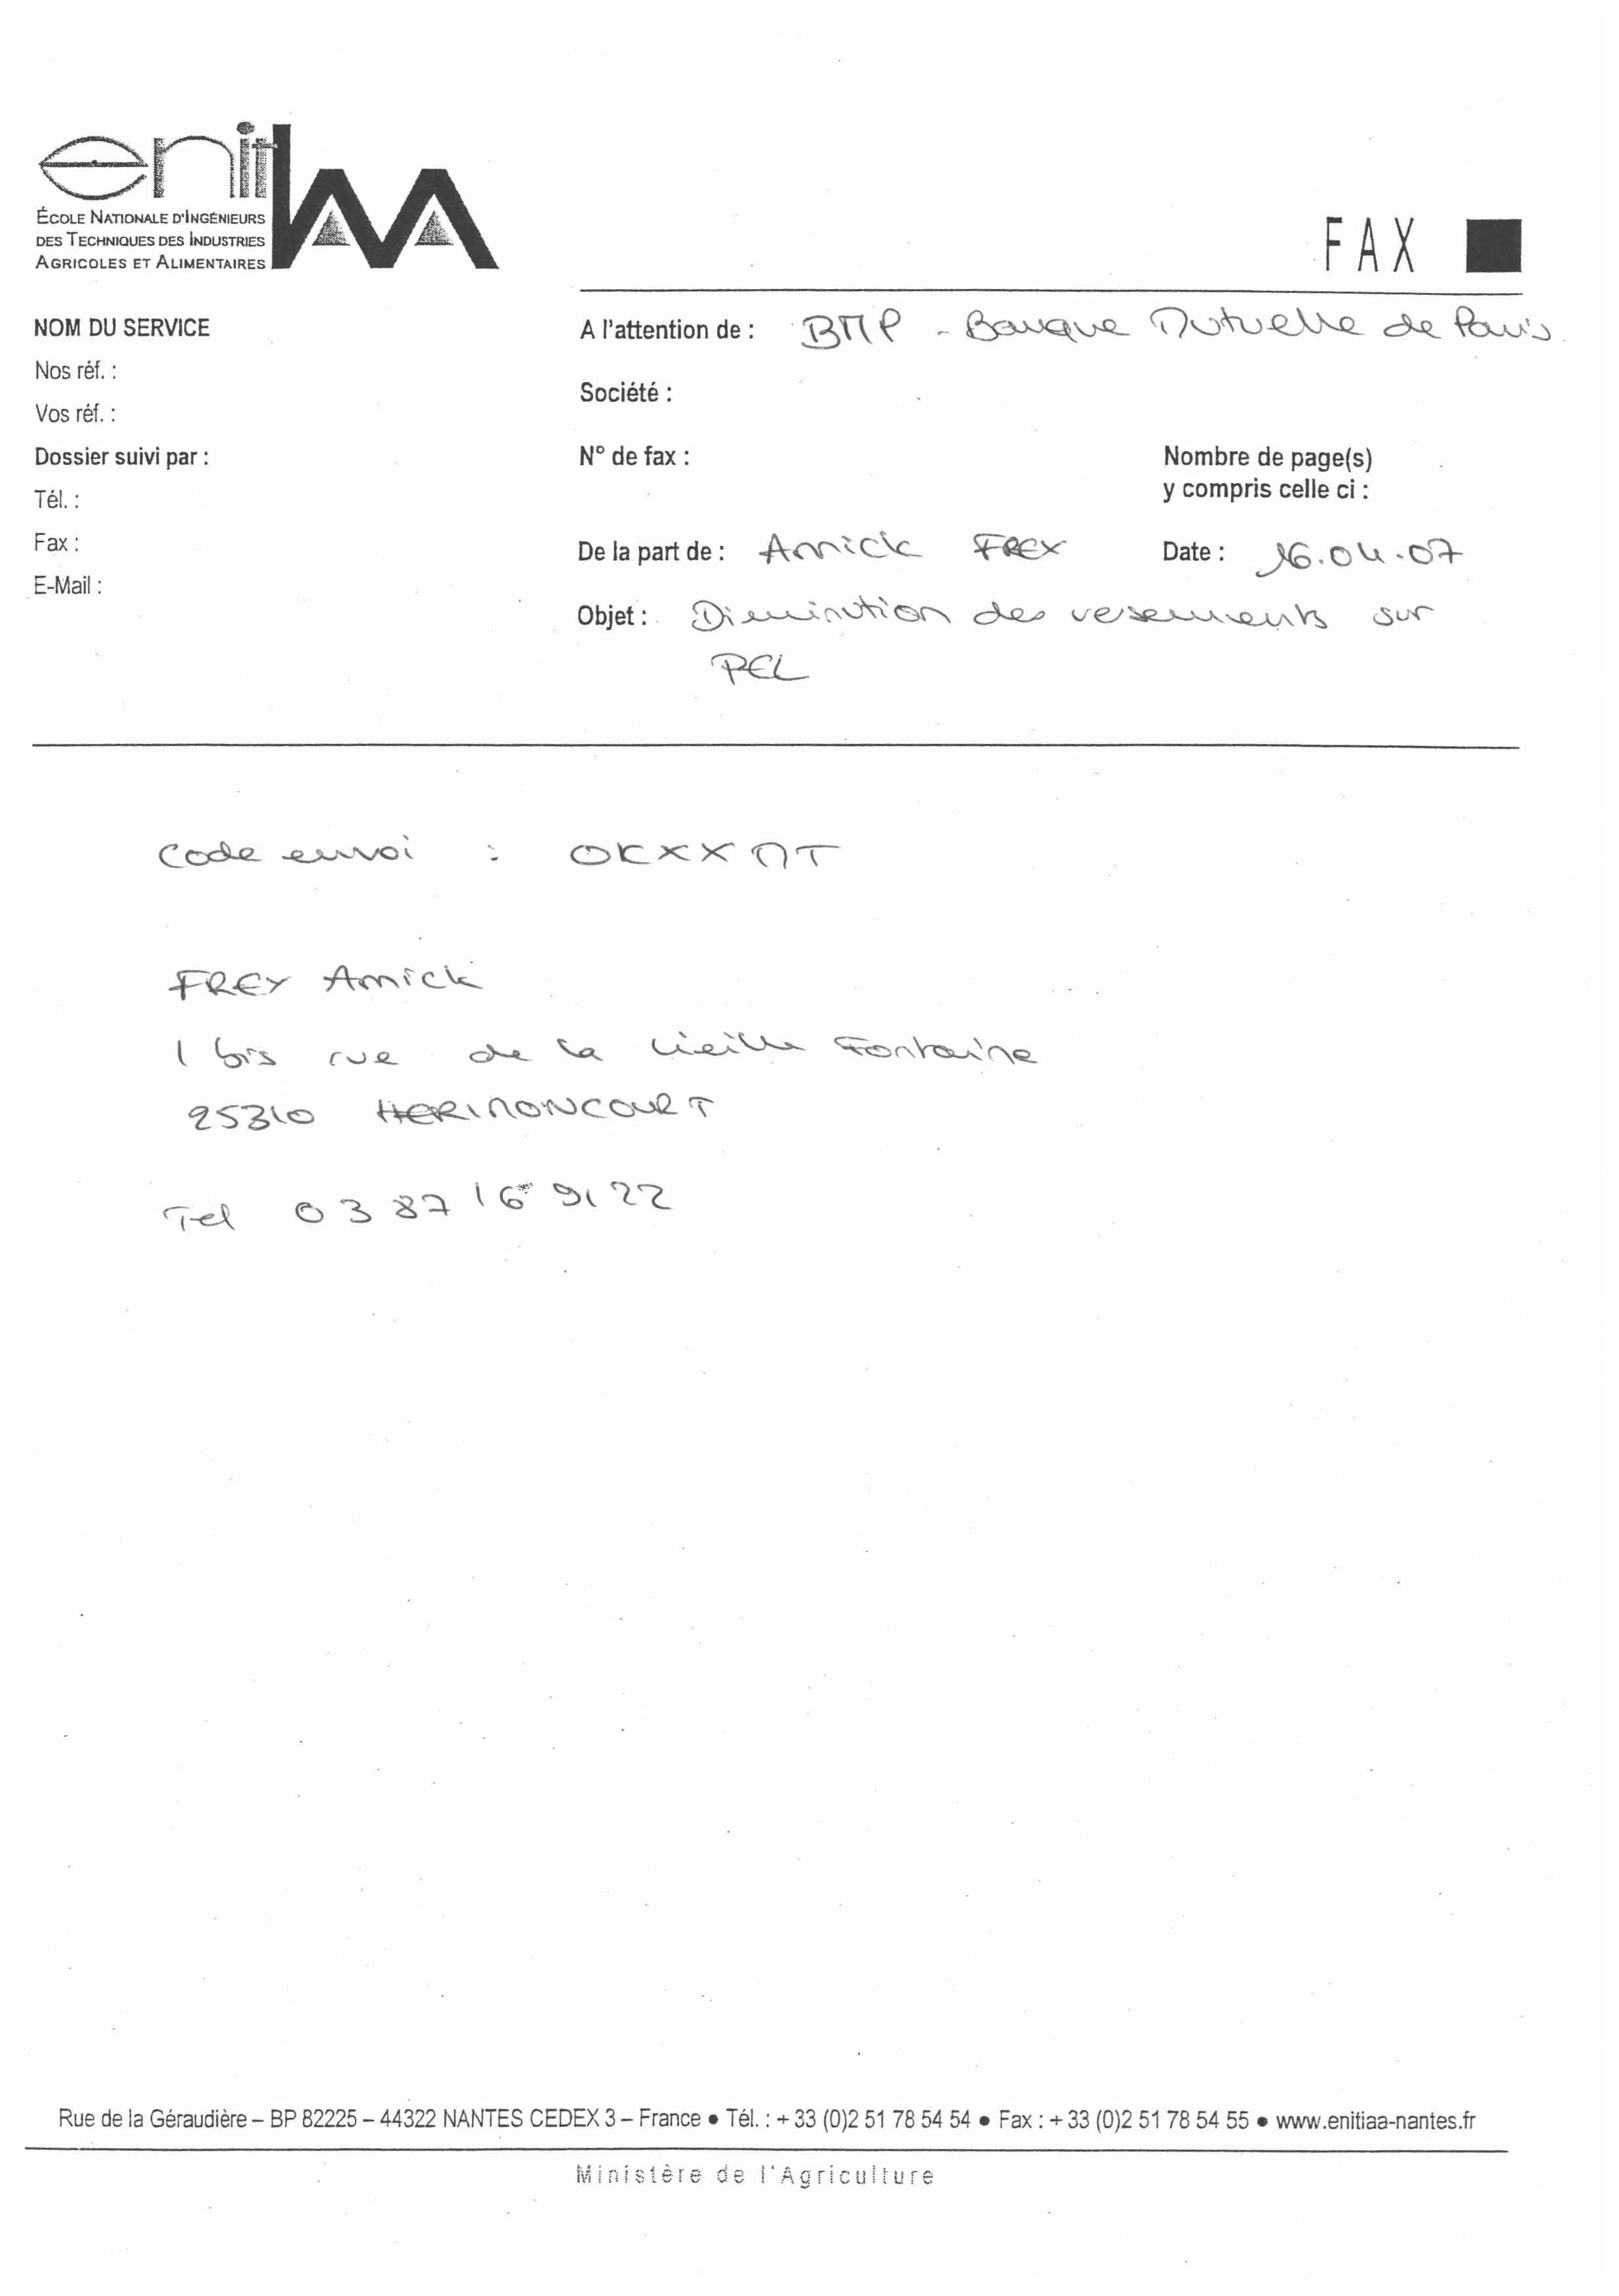 enitIAA
ÉCOLE NATIONALE D'INGÉNIEURS
DES TECHNIQUES DES INDUSTRIES
AGRICOLES ET ALIMENTAIRES
FAX
NOM DU SERVICE
Nos réf. :
Vos réf. :
Dossier suivi par :
Tél. :
Fax :
E-Mail :
A l'attention de : BMP - Banque Mutuelle de Paris
Société :
N° de fax :
Nombre de page(s)
y compris celle ci :
De la part de : Annick FREY
Date : 16.04.07
Objet : Diminution des versements sur
PEL
Code envoi : OKXXMT
FREY Annick
1 bis rue de la vieille Fontaine
25310 HERIMONCOURT
Tel 03 87 16 91 22
Rue de la Géraudière – BP 82225 – 44322 NANTES CEDEX 3 – France ● Tél. : + 33 (0)2 51 78 54 54 ● Fax : + 33 (0)2 51 78 54 55 ● www.enitiaa-nantes.fr
Ministère de l'Agriculture